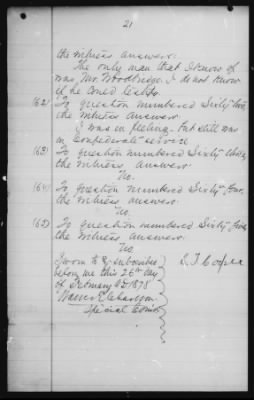 21
the witness answers:
The only man that I know of
was, Mr. Woodbridge. I do not know
if he could testify
(62) To question numbered Sixty two,
the witness answers
I was in feeling. but still was
in Confederate service
(63) To question numbered Sixty three,
the witness answers:
No.
(64) To question numbered Sixty four,
the witness answers:
No.
(65) To question numbered Sixty five,
the witness answers:
No
Sworn to & subscribed
before me this 26th day
of February AD 1878
Special Comr